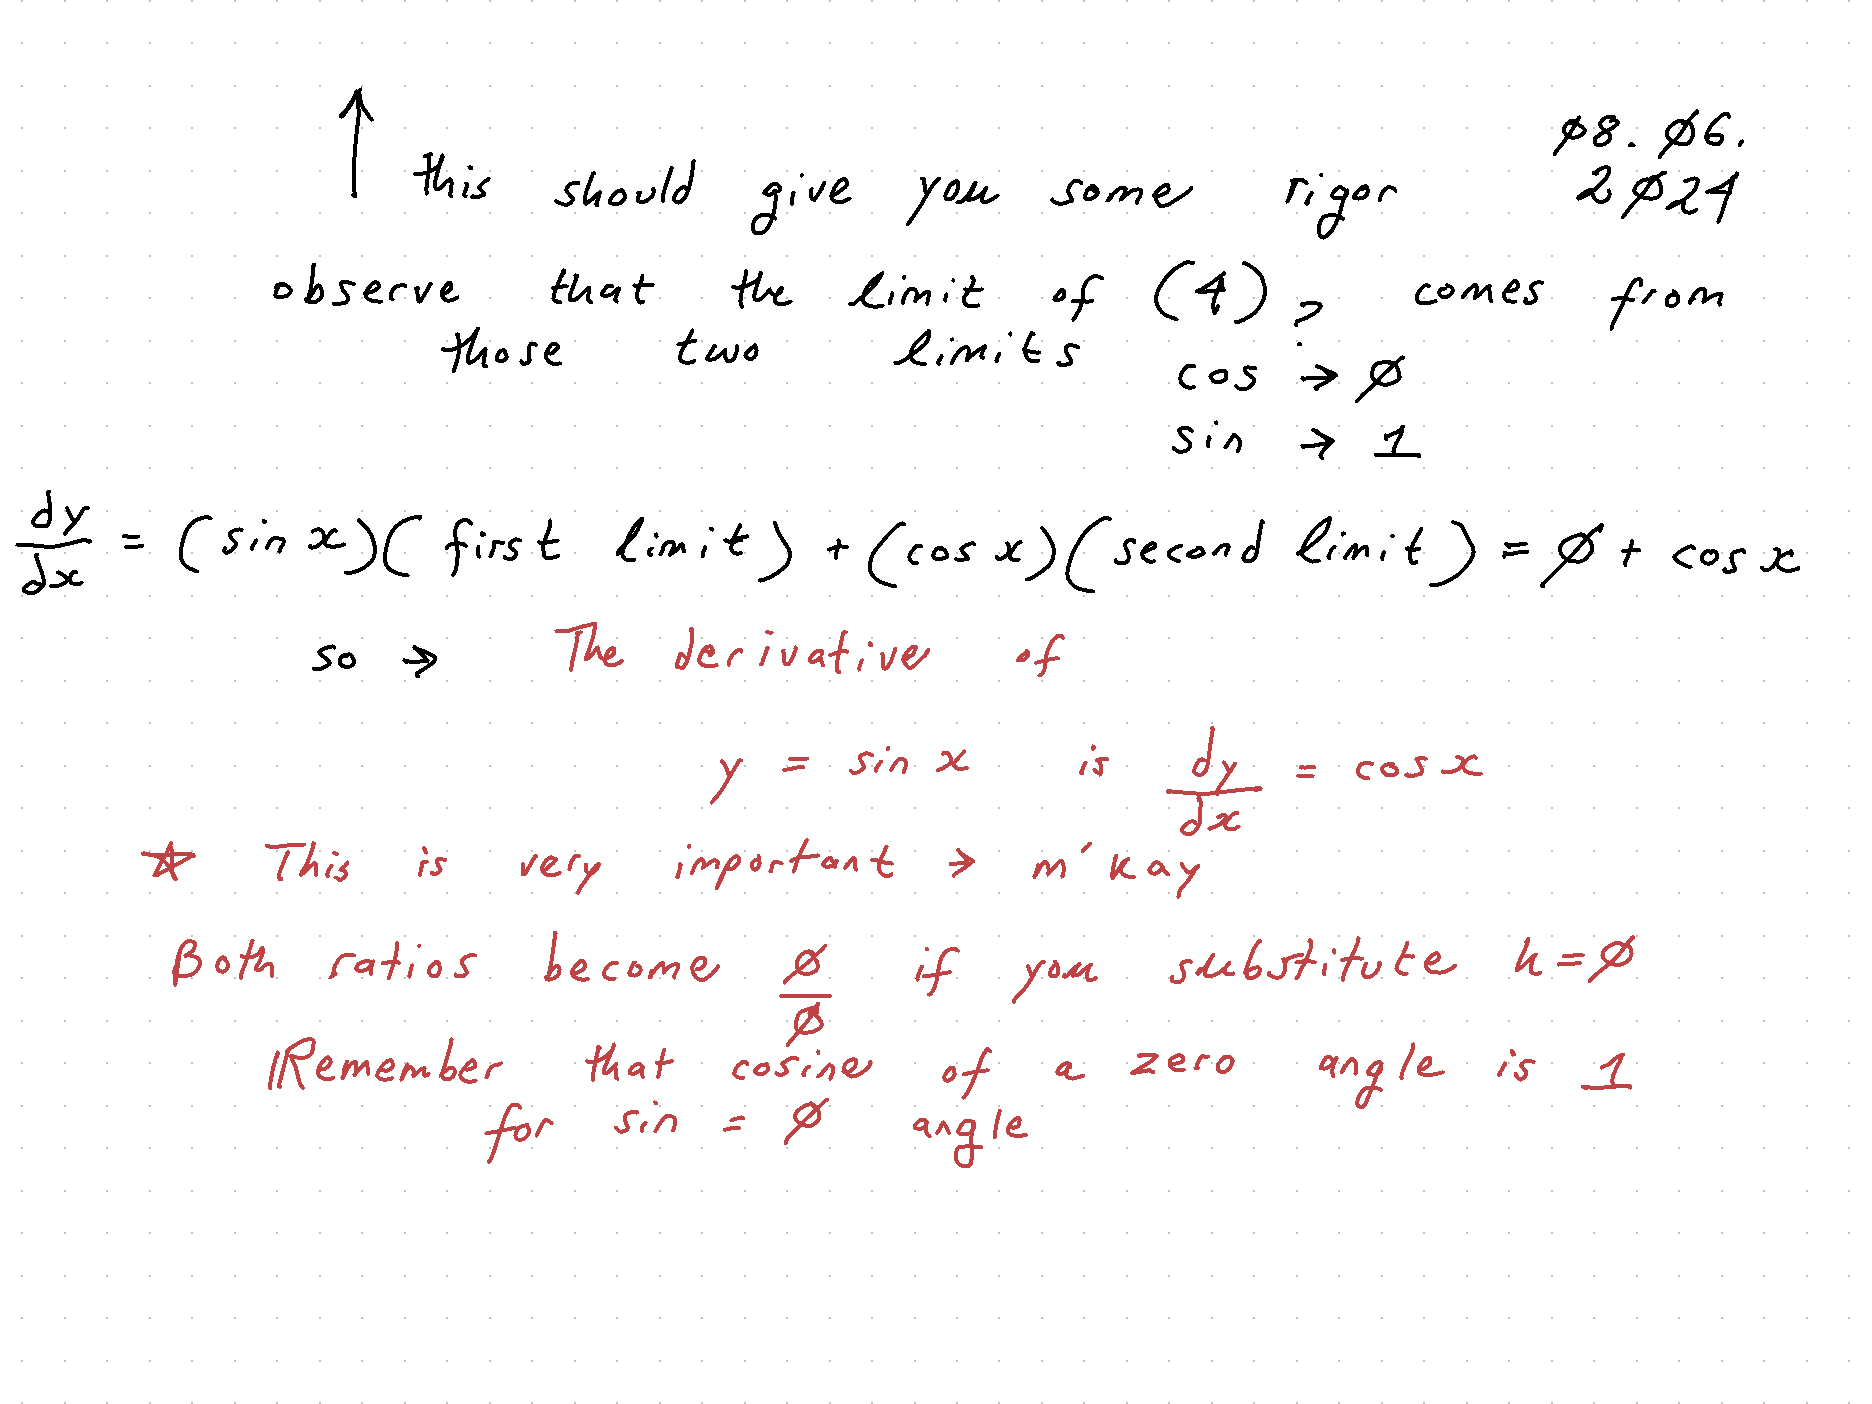 ↑ this should give you some rigor
ø8. ø6.
2ø24
observe that the limit of (4), comes from
those two limits
cos → ø
sin → 1
dy/dx = (sin x)(first limit) + (cos x)(second limit) = ø + cos x
so → The derivative of
y = sin x is dy/dx = cos x
☆ This is very important → m'kay
Both ratios become ø/ø if you substitute h = ø
Remember that cosine of a zero angle is 1
for sin = ø angle